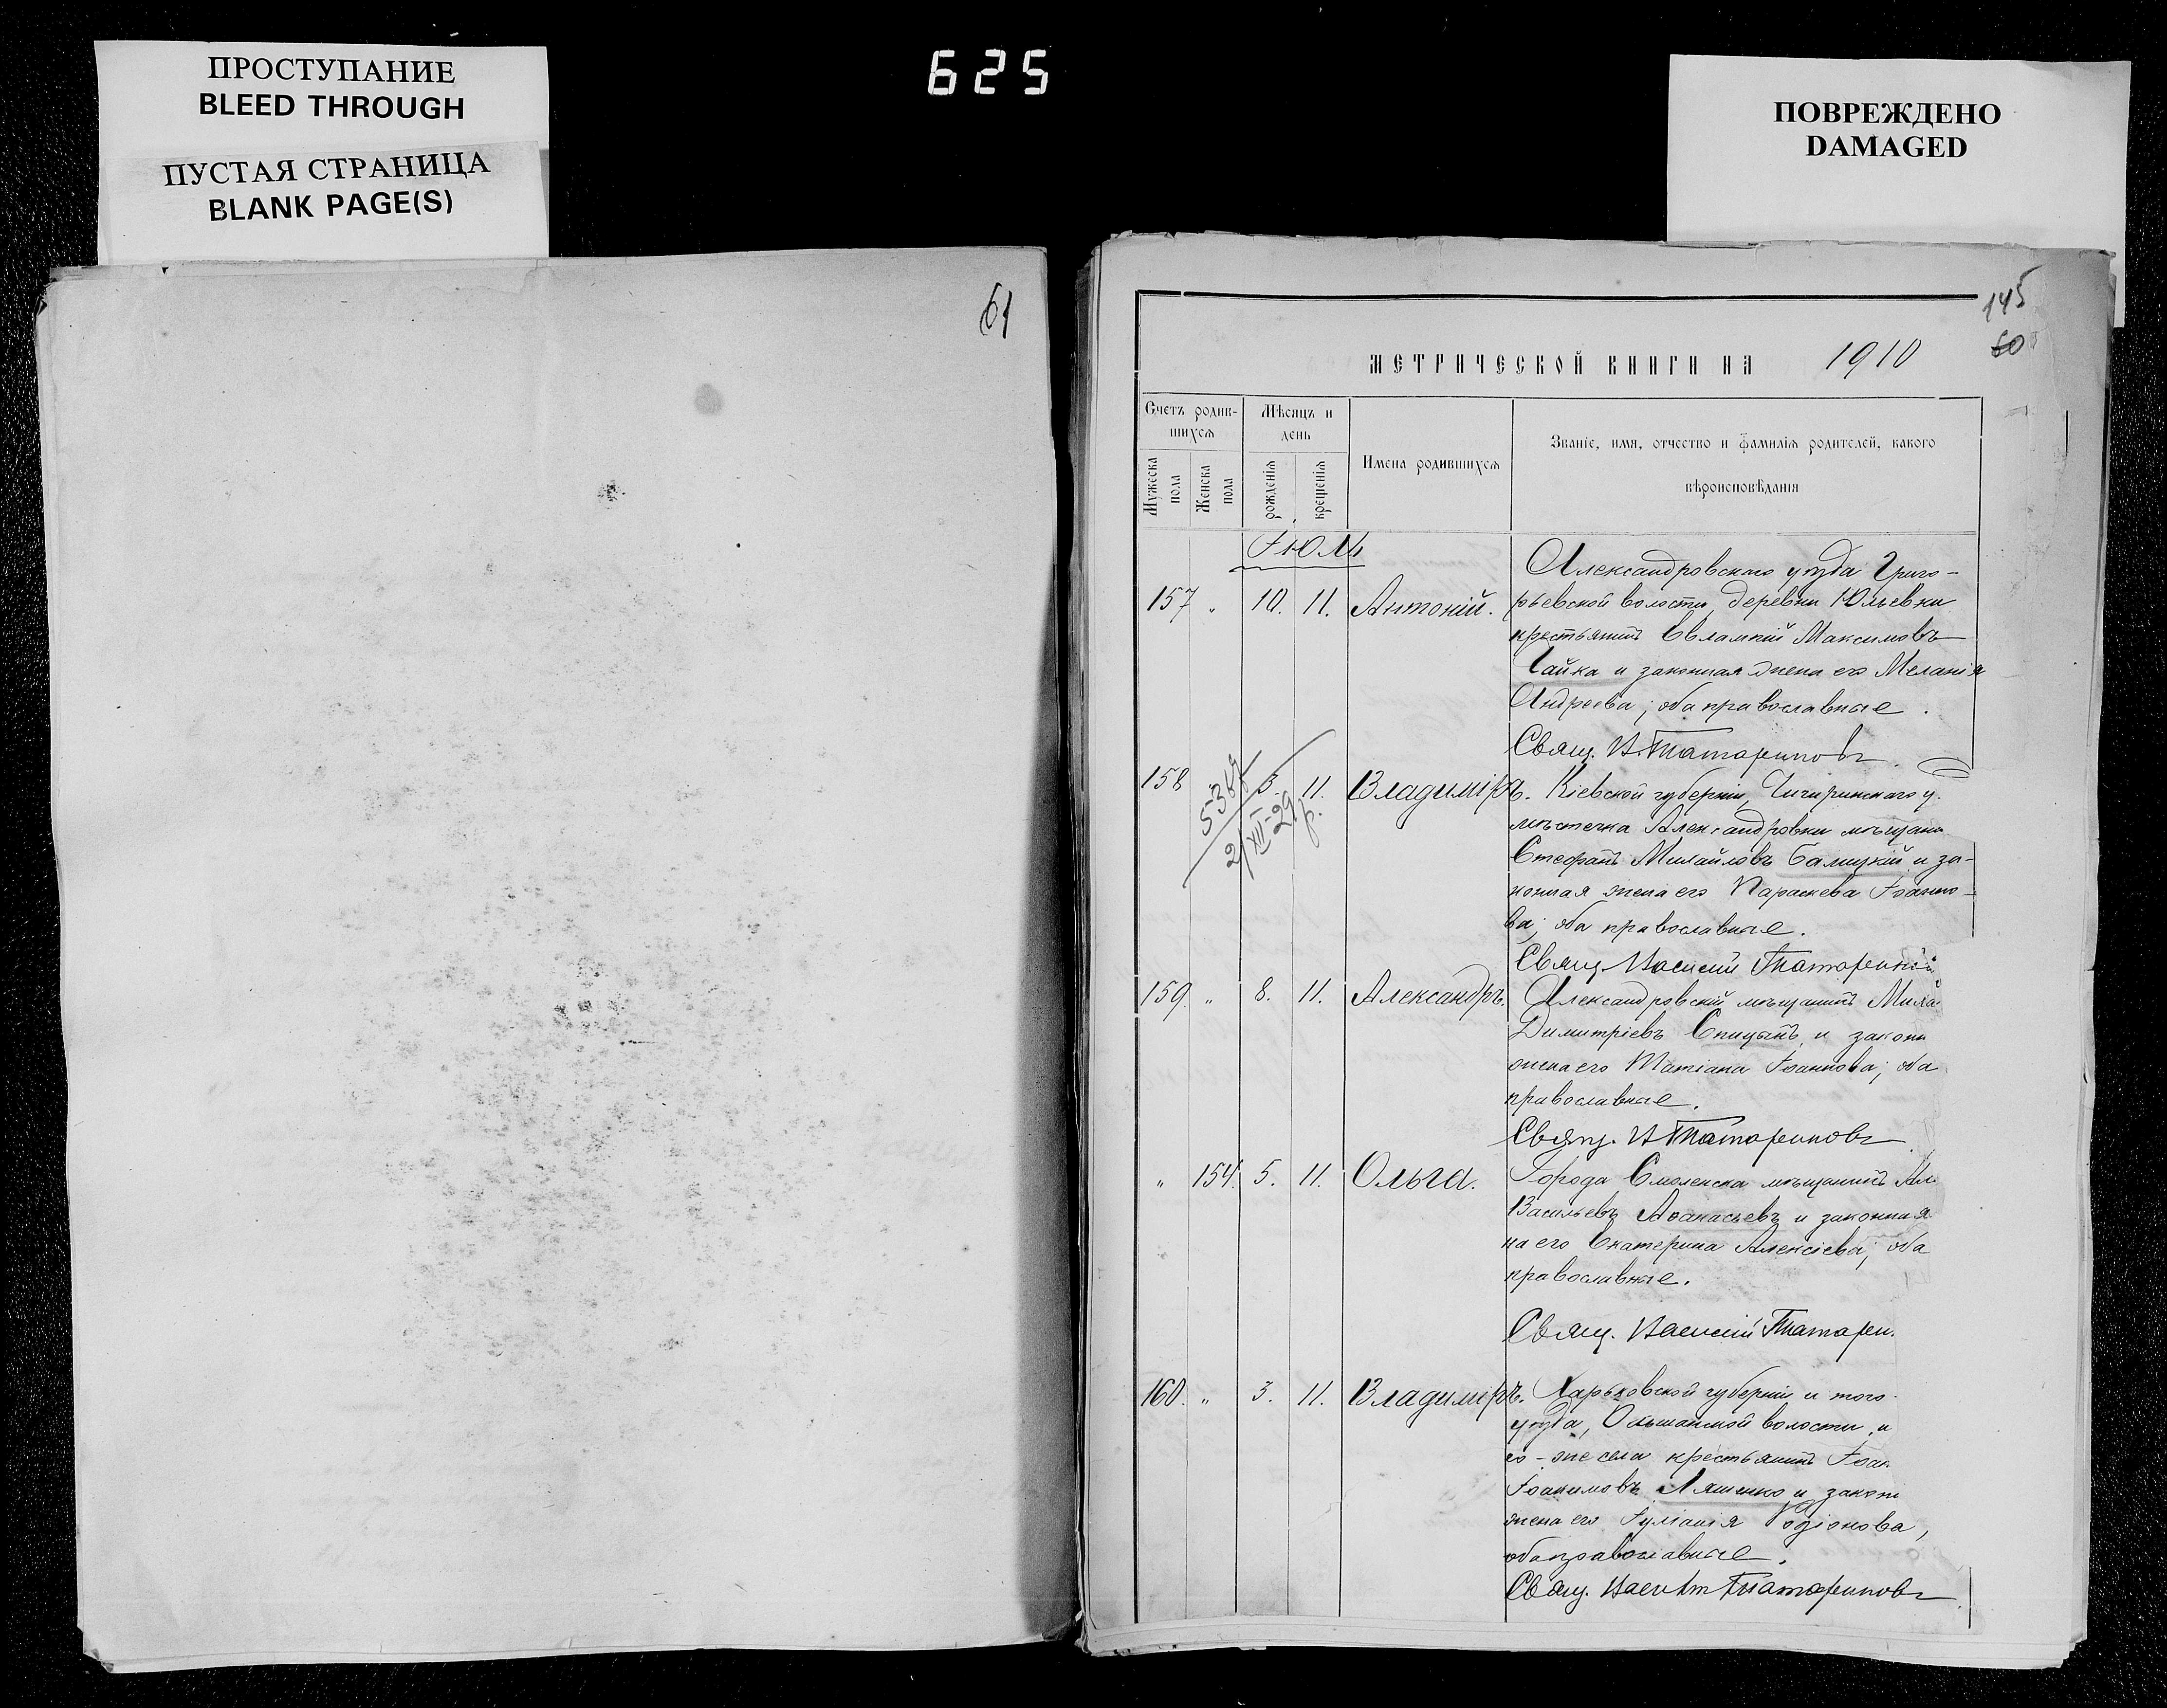 ПРОСТУПАНИЕ
BLEED THROUGH
ПУСТАЯ СТРАНИЦА
BLANK PAGE(S)
625
ПОВРЕЖДЕНО
DAMAGED
61
145
60
МЕТРИЧЕСКОЙ КНИГИ НА 1910
Счетъ родив-
шихся
Мѣсяцъ и
день
Мужеска
пола
Женска
пола
рожденія
крещенія
Имена родившихся
Званіе, имя, отчество и фамилія родителей, какого
вѣроисповѣданія
Іюль
Александровскаго уѣзда Григо-
157 " 10. 11. Антоній. рьевской волости, деревни Юльевки
крестьянинъ Евлампій Максимовъ
Чайка и законная жена его Меланія
Андреева; оба православные.
Свящ. В. Татариновъ.
158 5. 11. Владиміръ. Кіевской губерніи, Чигиринскаго у.
5367
2/XII-29 р.
мѣстечка Александровки мѣщани
Стефанъ Михайловъ Балицкій и за-
конная жена его Параскева Іоанно-
ва; оба православные.
Свящ. Василій Татаринов
159. " 8. 11. Александръ. Александровскій мѣщанинъ Миха
Димитріевъ Спицынъ и законн
жена его Татіана Іоаннова; оба
православные.
Свящ. В Татариновъ
" 154. 5. 11. Ольга. Города Смоленска мѣщанинъ Ал
Васильевъ Аѳанасьевъ и законная
на его Екатерина Алексіева; оба
православные.
Свящ. Василій Татарин.
160. " 3. 11. Владиміръ. Харьковской губерніи и того
уѣзда, Ольшанской волости, и
го-же села крестьянинъ Іоан
Іоакимовъ Ляшенко и законн
жена его Іуліанія Родіонова,
оба православные.
Свящ. Василій Татариновъ